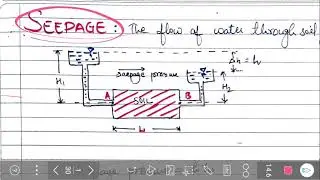 SEEPAGE: The flow of water through soil
Δh = h
H1
seepage pressure
H2
A
SOIL
B
L